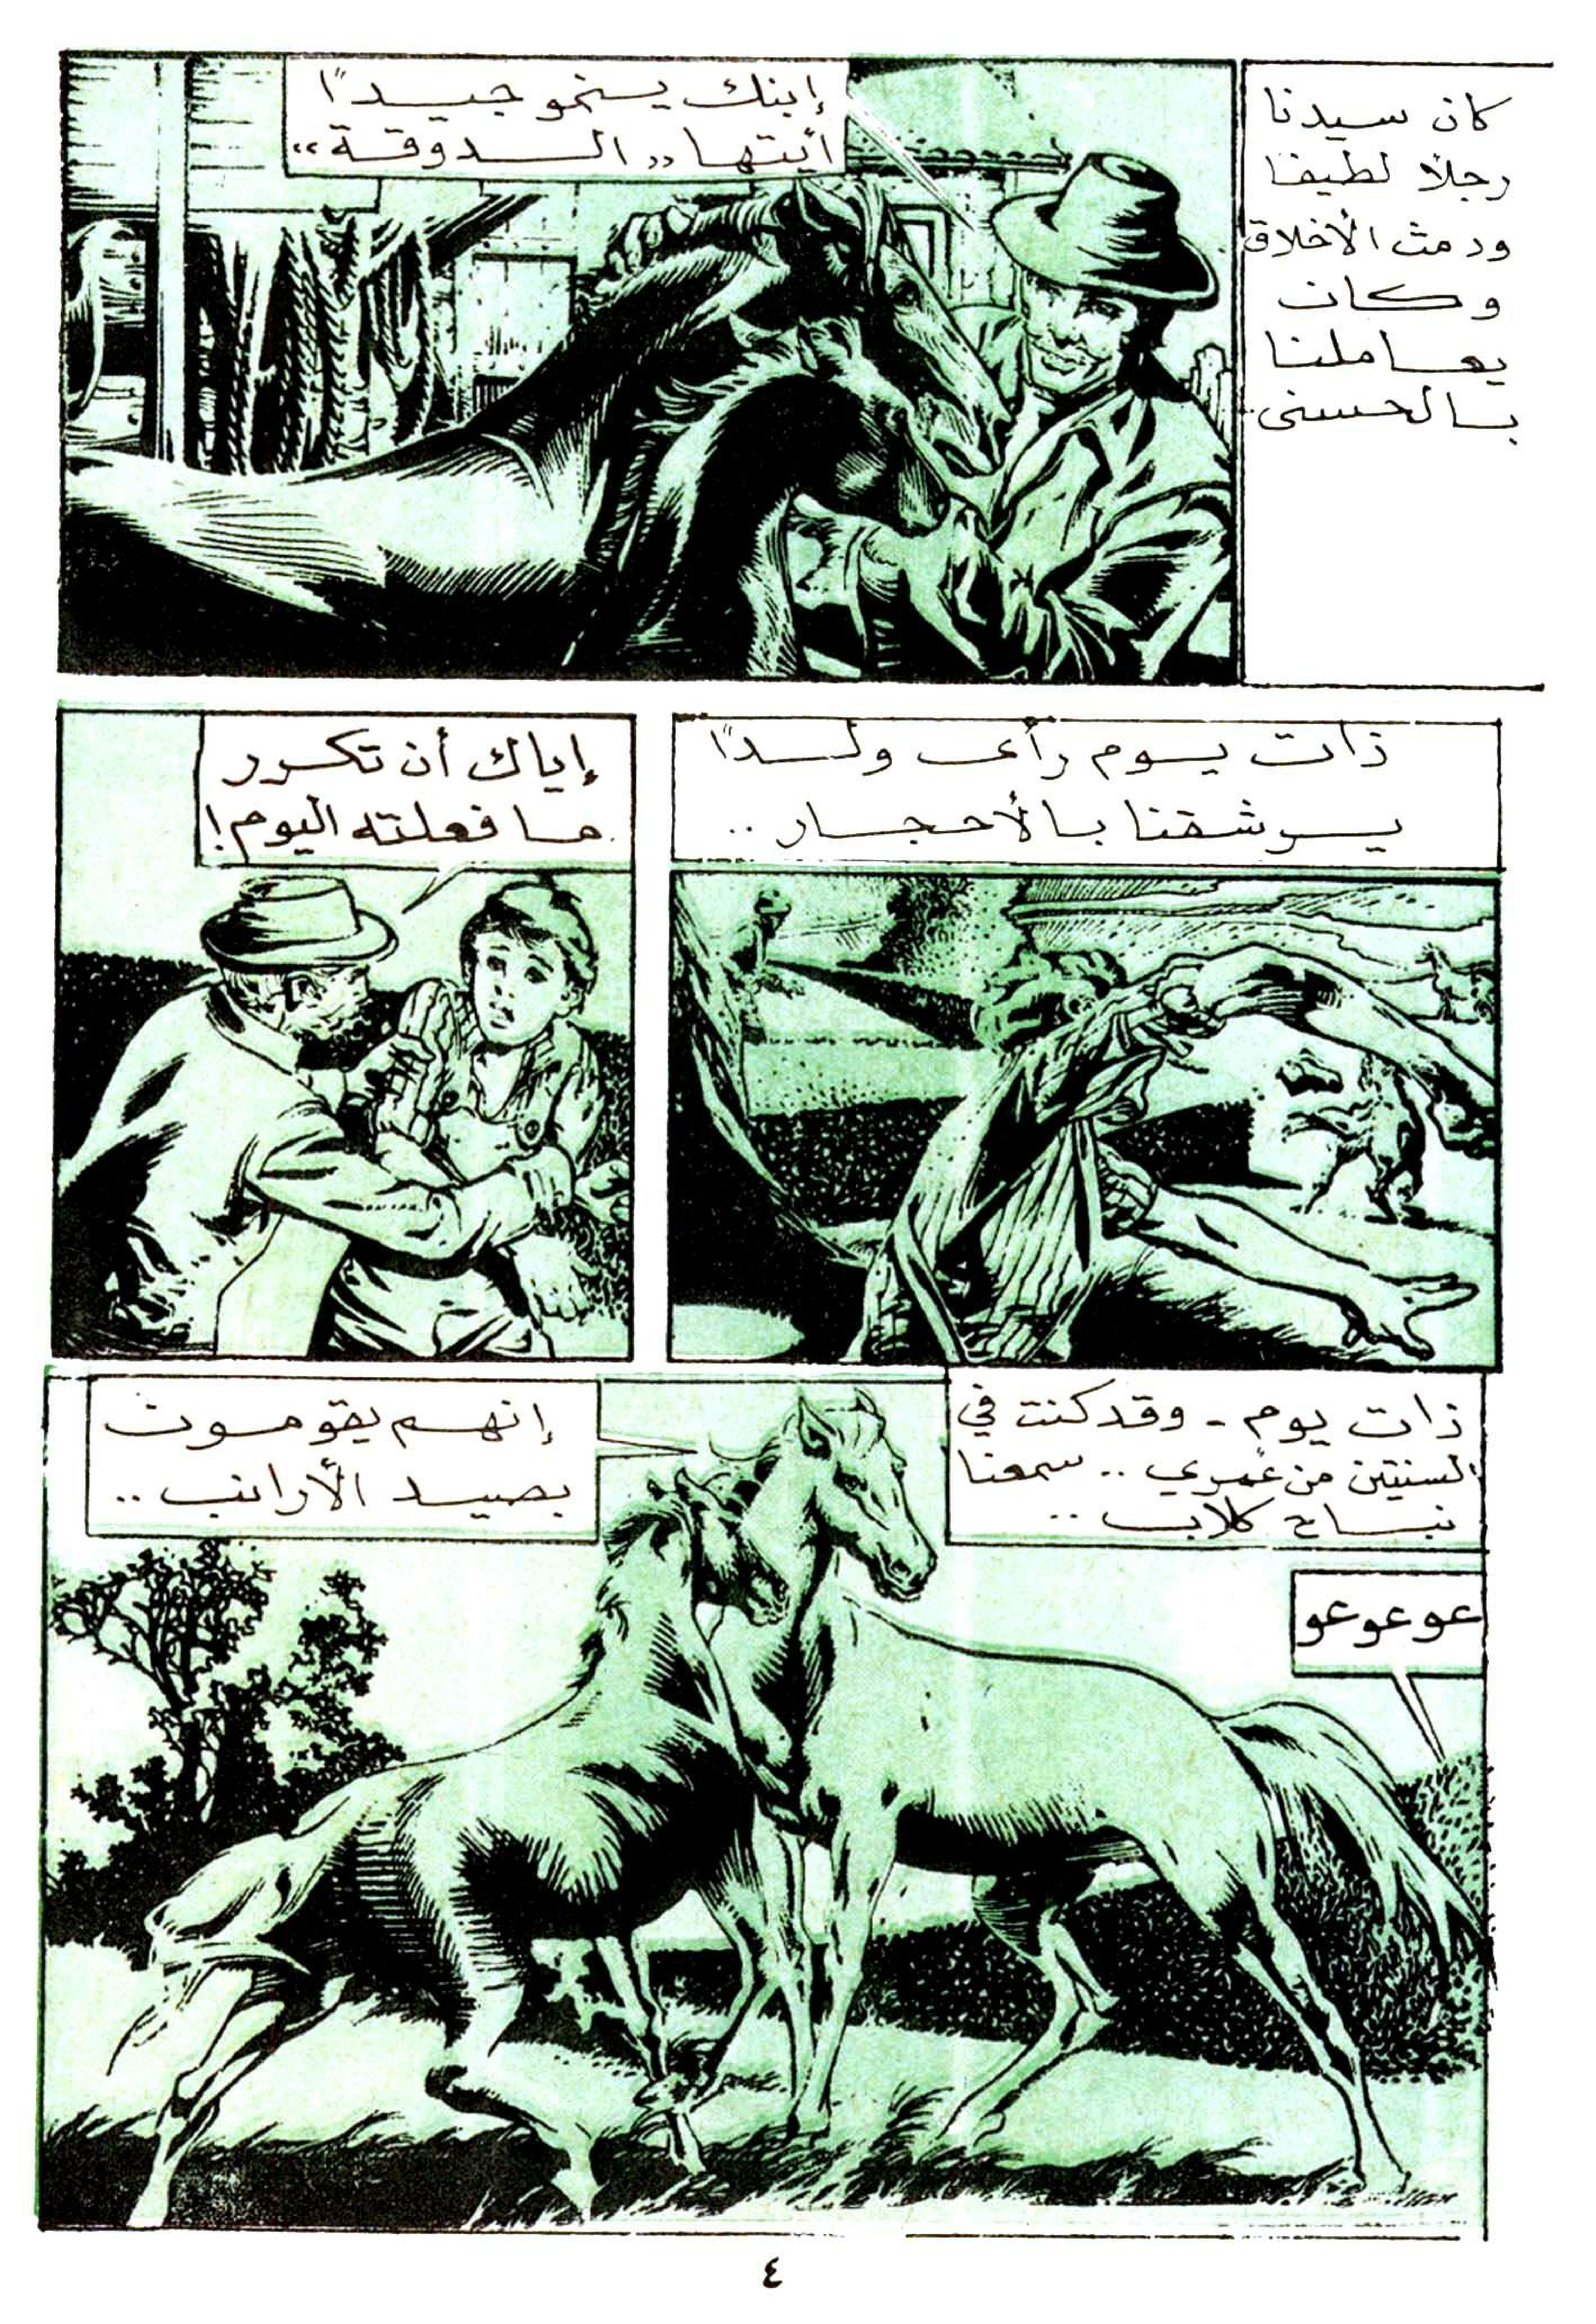 كان سيدنا
رجلاً لطيفا
ودمث الأخلاق
وكان
يعاملنا
بالحسنى..
إبنك ينمو جيداً
أيتها «الدوقة»
ذات يوم رأى ولداً
يرشقنا بالأحجار ..
إياك أن تكرر
ما فعلته اليوم!
ذات يوم - وقد كنت في
السنتين من عمري .. سمعنا
نباح كلاب ..
إنهم يقومون
بصيد الأرانب ..
عوعوعو
٤